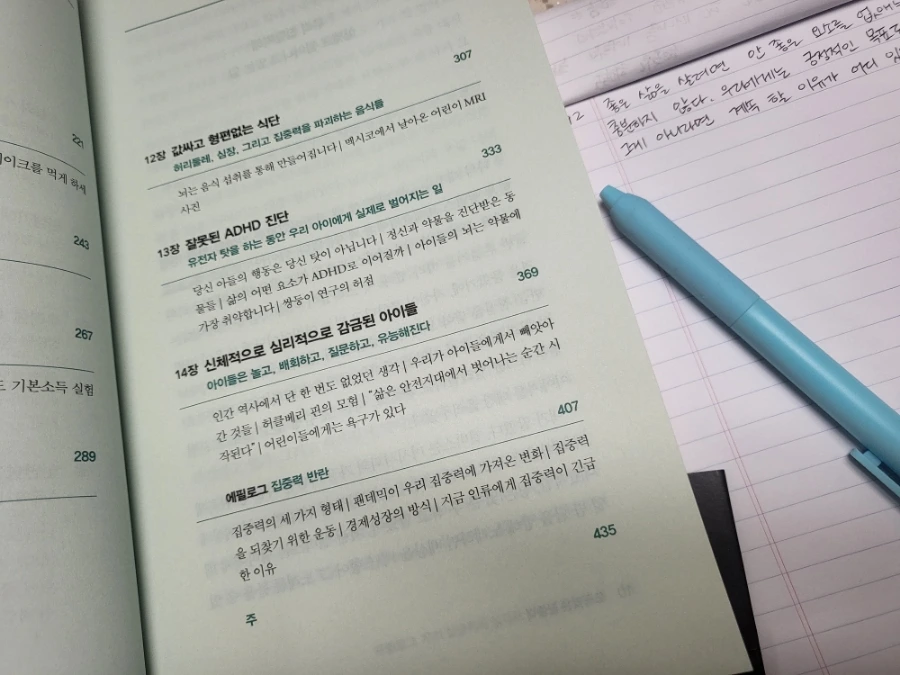 221
이크를 먹게 하서
243
267
기본소득 실험
289
307
12장 값싸고 형편없는 식단
허리둘레, 심장, 그리고 집중력을 파괴하는 음식들
뇌는 음식 섭취를 통해 만들어집니다 | 멕시코에서 날아온 어린이 MRI
사진
333
13장 잘못된 ADHD 진단
유전자 탓을 하는 동안 우리 아이에게 실제로 벌어지는 일
당신 아들의 행동은 당신 탓이 아닙니다 | 정신과 약물을 진단받은 동
물들 | 삶의 어떤 요소가 ADHD로 이어질까 | 아이들의 뇌는 약물에
가장 취약합니다 | 쌍둥이 연구의 허점
369
14장 신체적으로 심리적으로 감금된 아이들
아이들은 놀고, 배회하고, 질문하고, 유능해진다
인간 역사에서 단 한 번도 없었던 생각 | 우리가 아이들에게서 빼앗아
간 것들 | 허클베리 핀의 모험 | “삶은 안전지대에서 벗어나는 순간 시
작된다” | 어린이들에게는 욕구가 있다
407
에필로그 집중력 반란
집중력의 세 가지 형태 | 팬데믹이 우리 집중력에 가져온 변화 | 집중력
을 되찾기 위한 운동 | 경제성장의 방식 | 지금 인류에게 집중력이 긴급
한 이유
435
주
좋은 삶을 살려면 안 좋은 요소를 없애는
충분하지 않다. 우리에게는 긍정적인 목표도
그게 아니라면 계속 할 이유가 어디 있